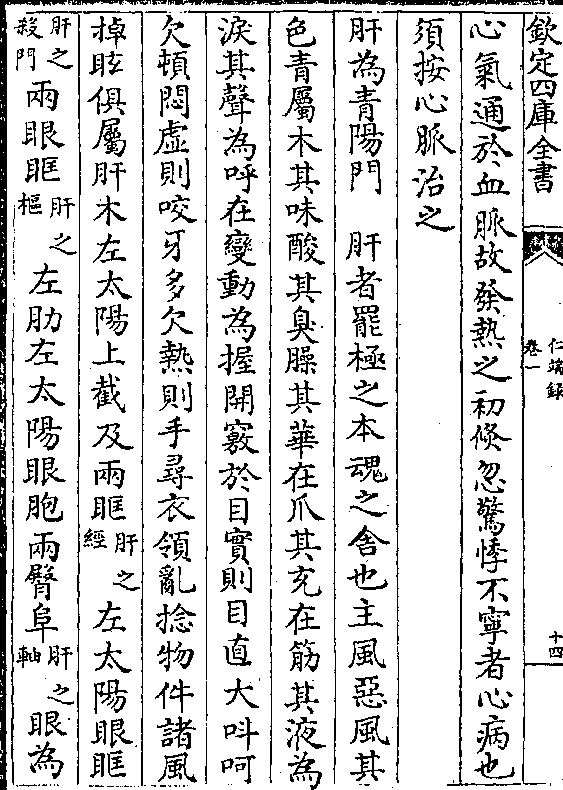 欽定四庫全書
仁端錄
卷一
十四
心氣通於血脈故發熱之初倐忽驚悸不寧者心病也
須按心脈治之
肝為青陽門　肝者罷極之本魂之舍也主風惡風其
色青屬木其味酸其臭臊其華在爪其充在筋其液為
淚其聲為呼在變動為握開竅於目實則目直大呌呵
欠頓悶虛則咬牙多欠熱則手尋衣領亂捻物件諸風
掉眩俱屬肝木左太陽上截及兩眶肝之經左太陽眼眶
肝之殺門兩眼眶肝之樞左肋左太陽眼胞兩臀阜肝之軸眼為